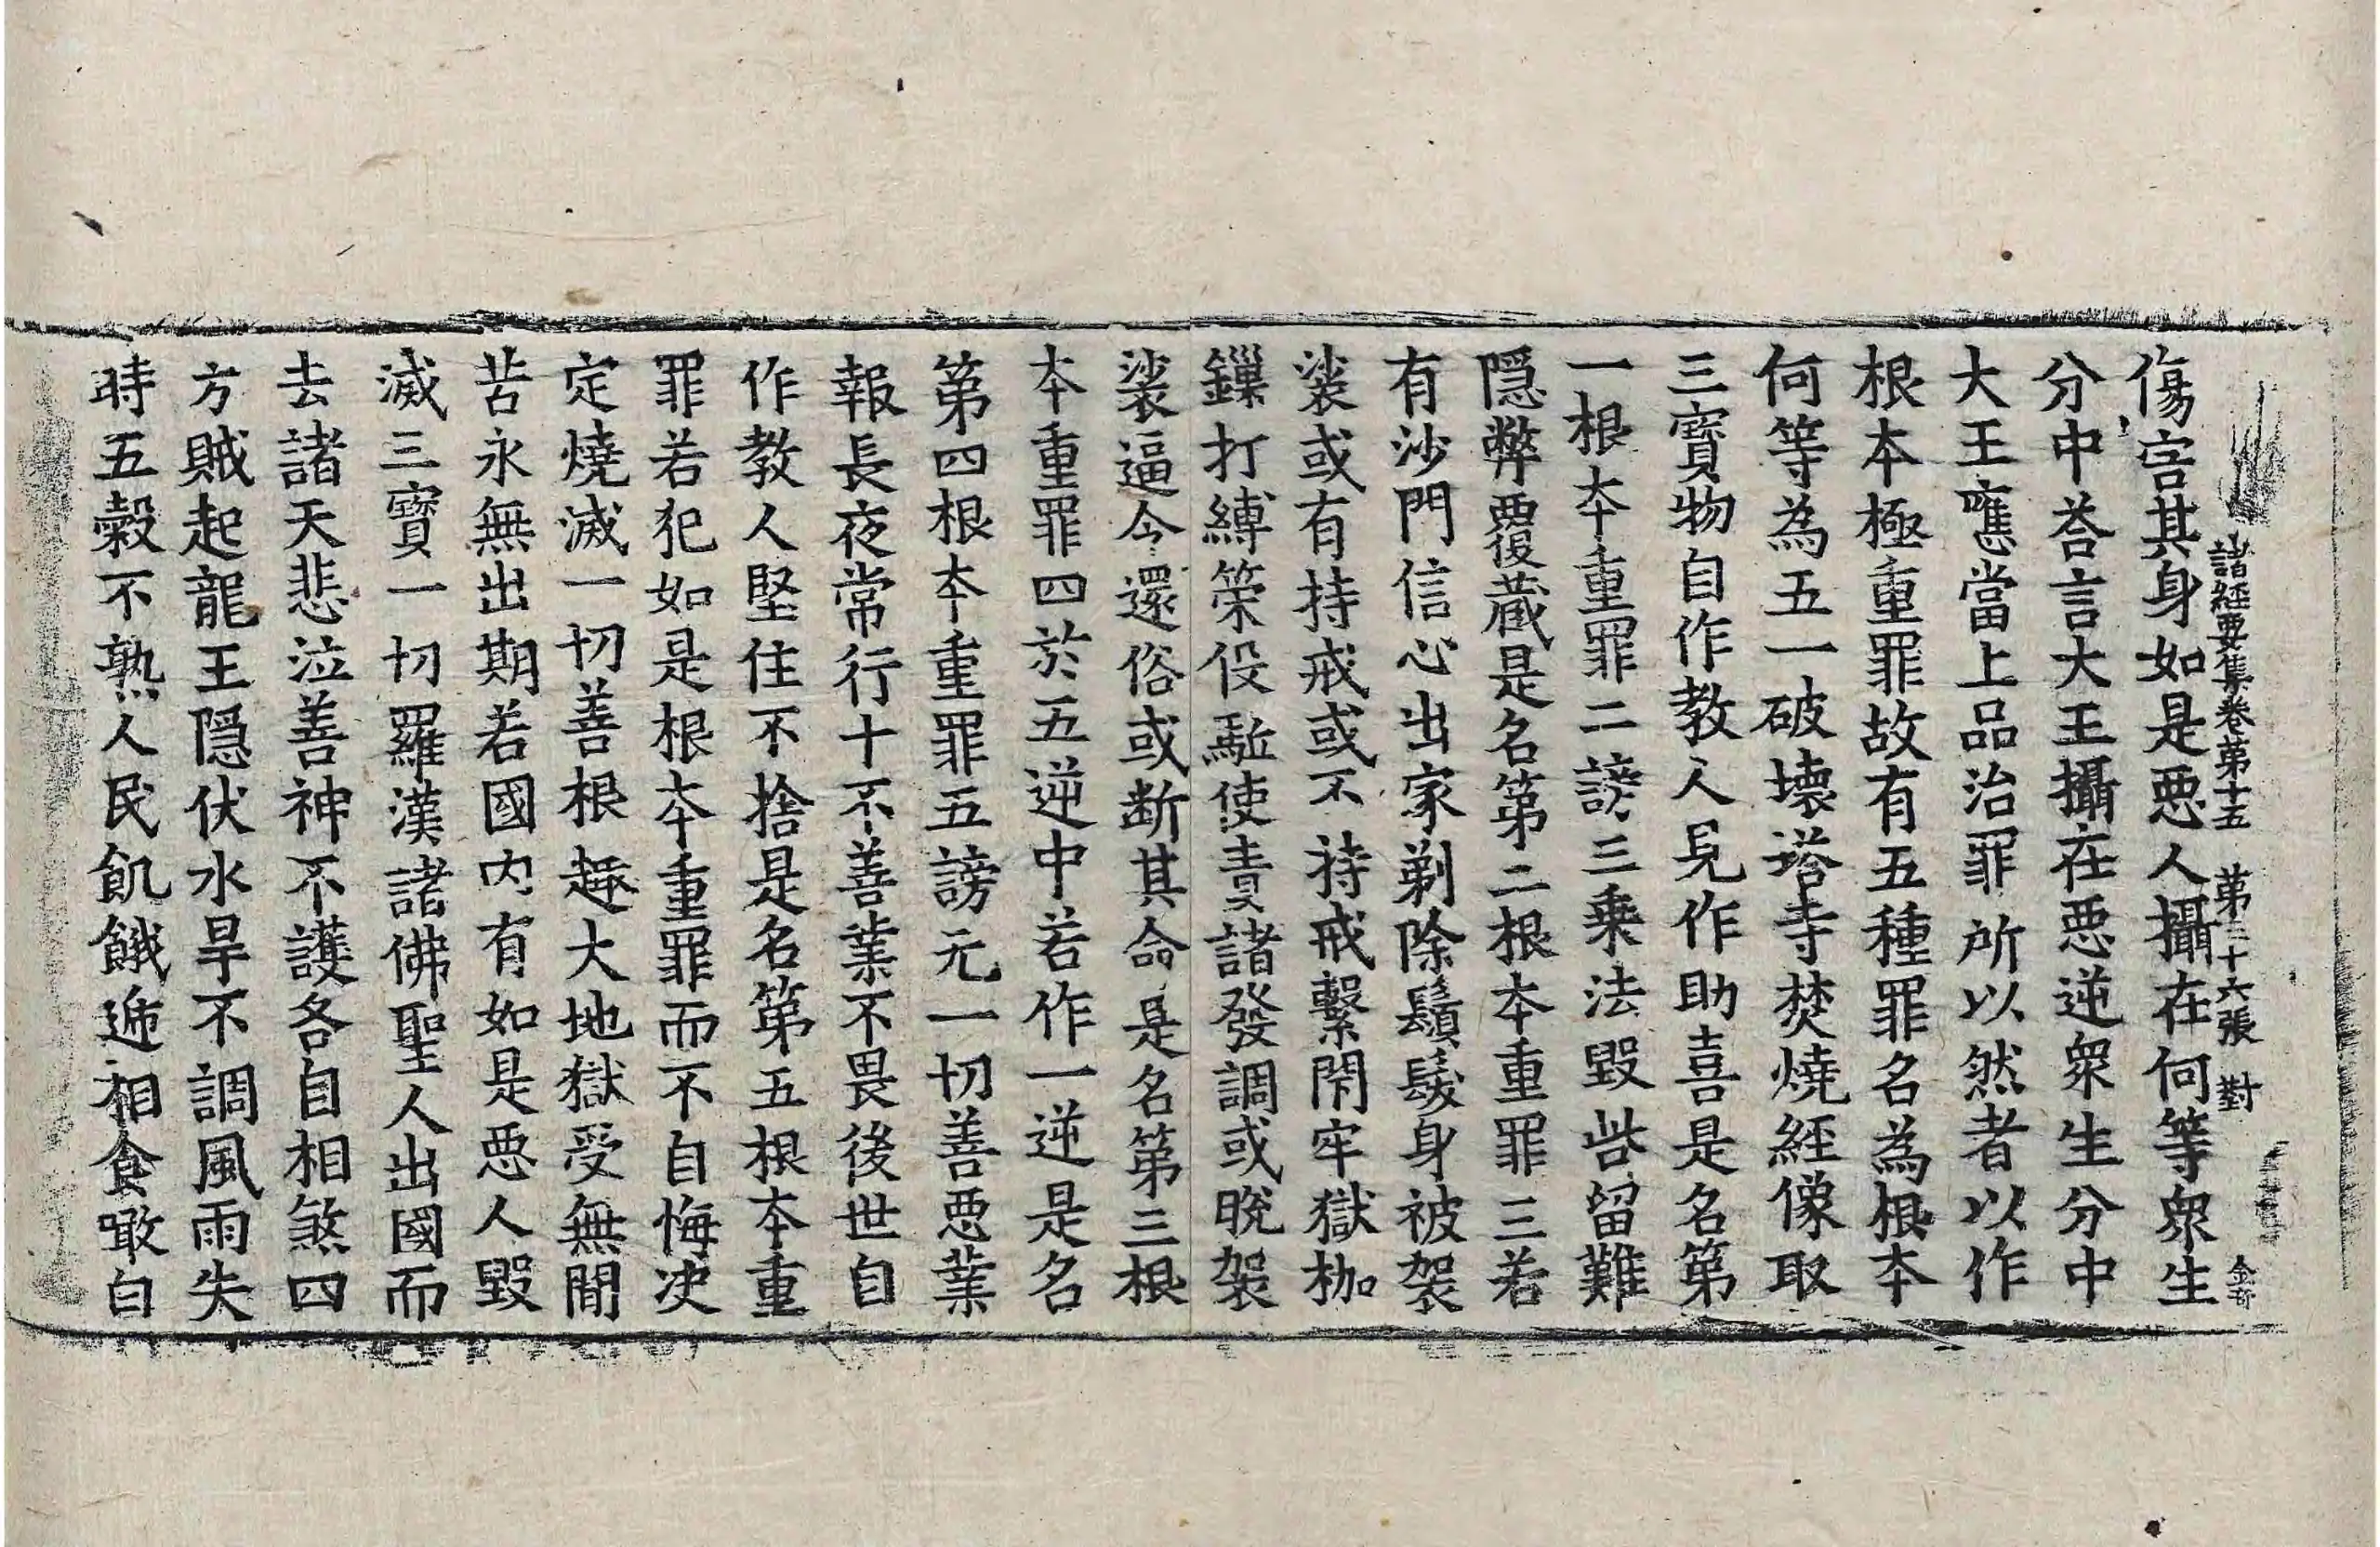 諸經要集卷第十五 第三十六張 對
傷害其身如是惡人攝在何等衆生
分中荅言大王攝在惡逆衆生分中
大王應當上品治罪所以然者以作
根本極重罪故有五種罪名為根本
何等為五一破壞塔寺焚燒經像取
三寶物自作教人見作助喜是名第
一根本重罪二謗三乘法毀呰留難
隱弊覆藏是名第二根本重罪三若
有沙門信心出家剃除鬚髮身被袈
裟或有持戒或不持戒繫閇牢獄枷
鏁打縛策役駈使責諸發調或脫袈
裟逼令還俗或斷其命是名第三根
本重罪四於五逆中若作一逆是名
第四根本重罪五謗无一切善惡業
報長夜常行十不善業不畏後世自
作教人堅住不捨是名第五根本重
罪若犯如是根本重罪而不自悔決
定燒滅一切善根趣大地獄受無間
苦永無出期若國內有如是惡人毀
滅三寶一切羅漢諸佛聖人出國而
去諸天悲泣善神不護各自相煞四
方賊起龍王隱伏水旱不調風雨失
時五穀不熟人民飢餓遞相食噉白